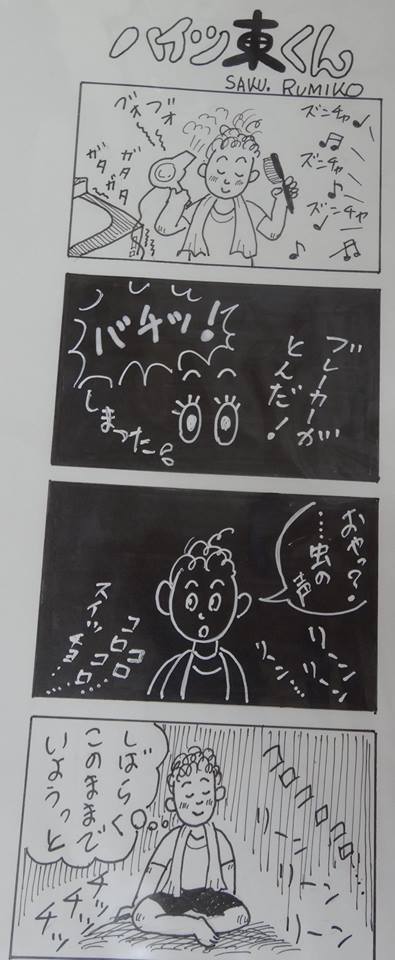 ハイツ東くん
SAKU. RUMIKO
ズンチャ♪
ズンチャ
ズンチャ
ブォ
ブォ
ガタ
ガタ
ガタ
ブレーカーが
とんだ!
バチッ!
しまった。
おやっ?
……虫の
声
リーン
リーン
リーン…
コロコロ
コロコロ…
スイッチョ……
コロコロコロ…
リーン
リーン
リーン
しばらく
このままで
いようっと
チッ
チッ
チッ